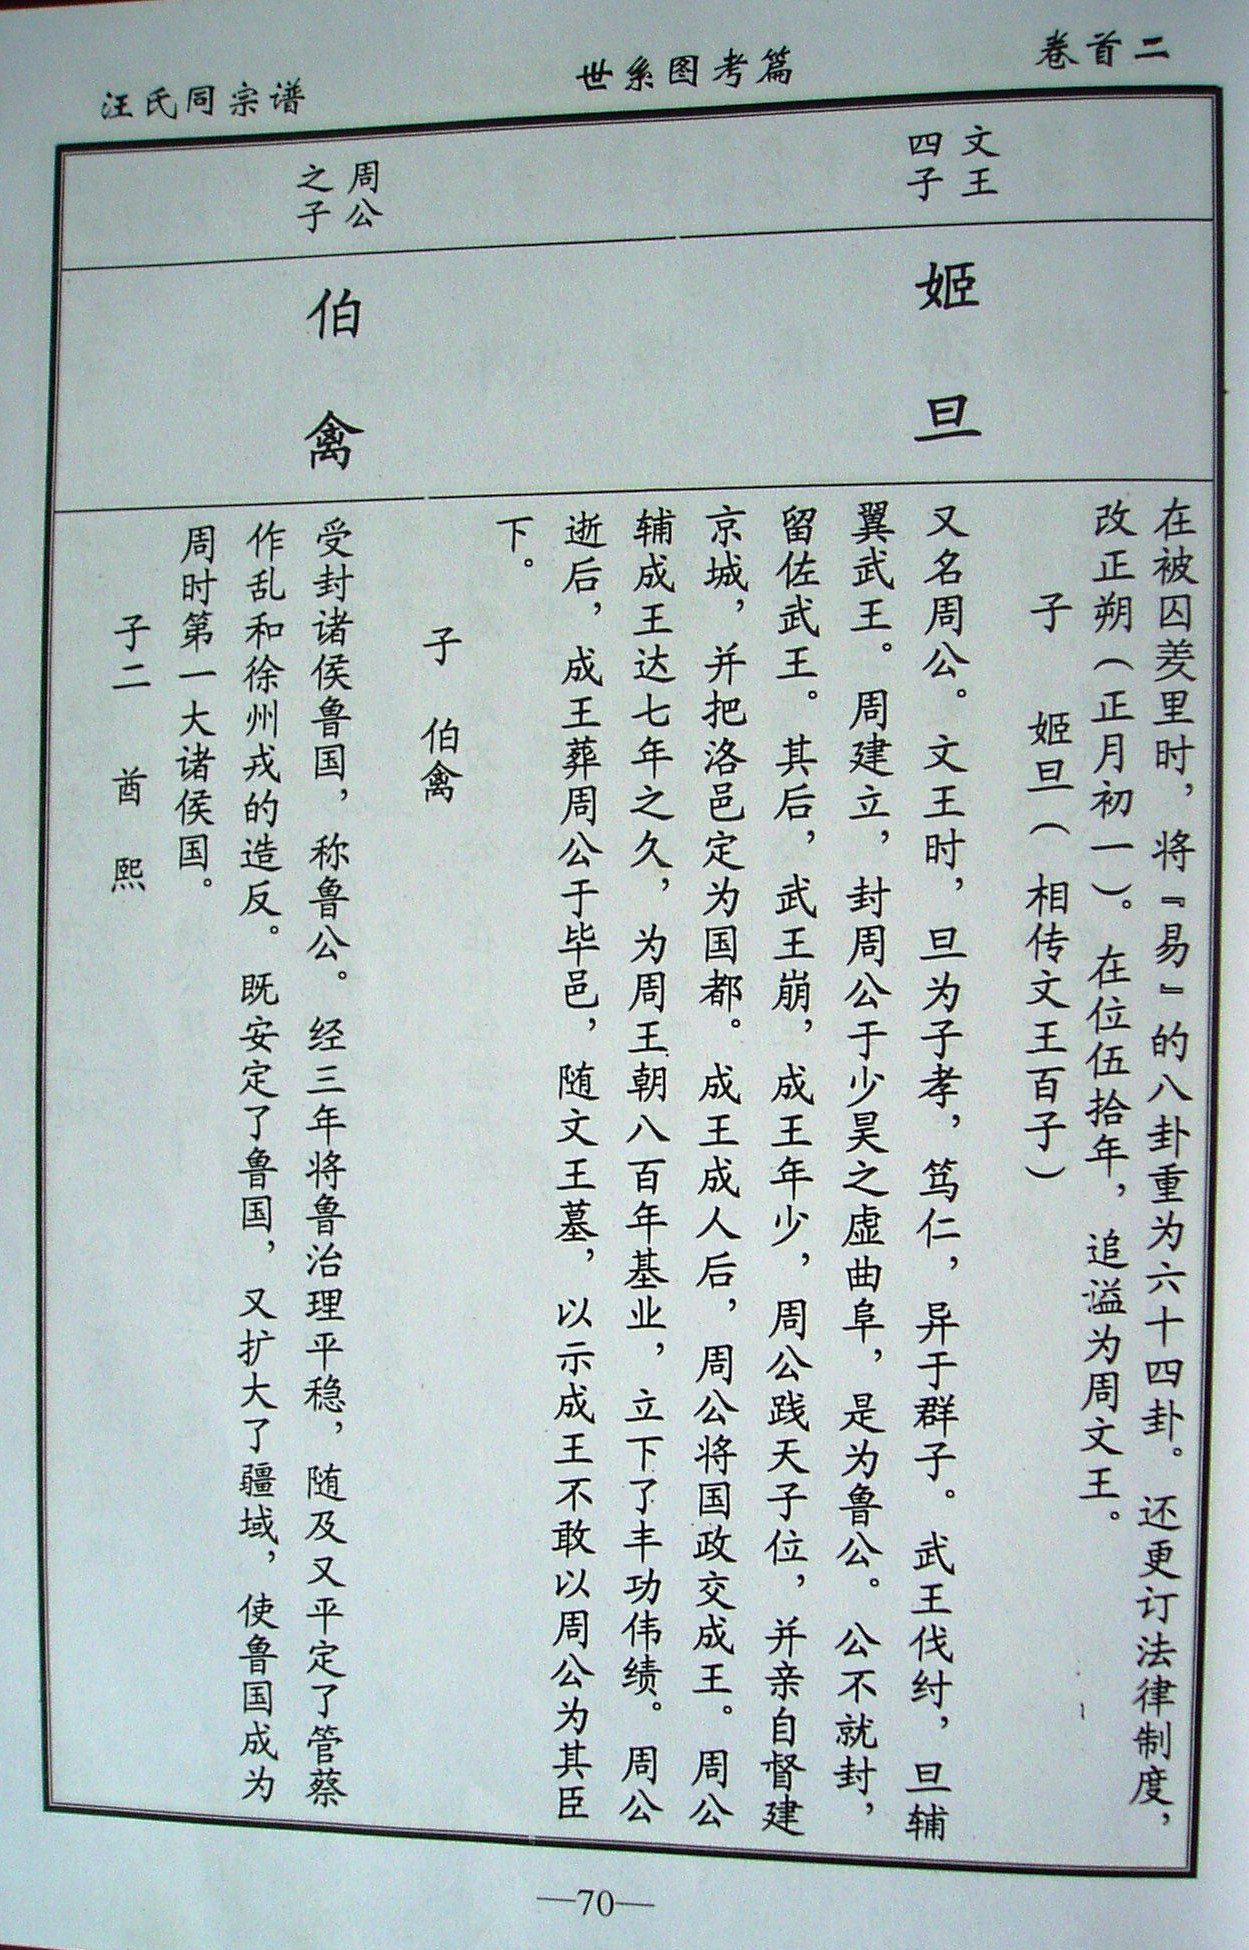 卷首二
世系图考篇
汪氏同宗谱
在被囚羑里时，将『易』的八卦重为六十四卦。还更订法律制度，
改正朔（正月初一）。在位伍拾年，追谥为周文王。
子 姬旦（相传文王百子）
文王
四子
姬旦
又名周公。文王时，旦为子孝，笃仁，异于群子。武王伐纣，旦辅
翼武王。周建立，封周公于少昊之虚曲阜，是为鲁公。公不就封，
留佐武王。其后，武王崩，成王年少，周公践天子位，并亲自督建
京城，并把洛邑定为国都。成王成人后，周公将国政交成王。周公
辅成王达七年之久，为周王朝八百年基业，立下了丰功伟绩。周公
逝后，成王葬周公于毕邑，随文王墓，以示成王不敢以周公为其臣
下。
子 伯禽
周公
之子
伯禽
受封诸侯鲁国，称鲁公。经三年将鲁治理平稳，随及又平定了管蔡
作乱和徐州戎的造反。既安定了鲁国，又扩大了疆域，使鲁国成为
周时第一大诸侯国。
子二 酋 熙
—70—